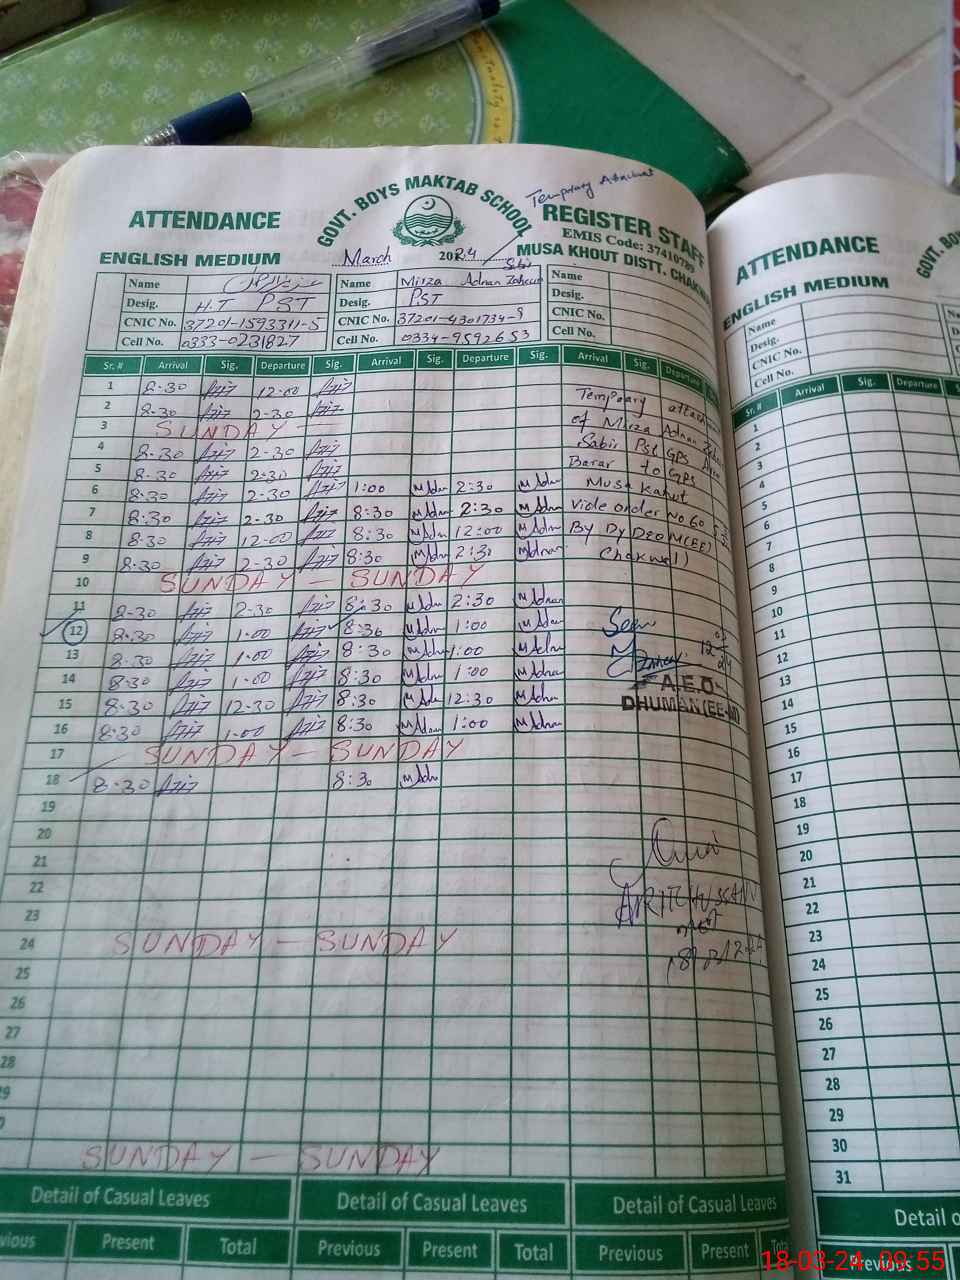 Temporary Attachment
ATTENDANCE
GOVT. BOYS MAKTAB SCHOOL
REGISTER STAFF
EMIS Code: 37410789
ENGLISH MEDIUM
March 2024
MUSA KHOUT DISTT.
Name
Desig. H.T PST
CNIC No. 37201-1593311-5
Cell No. 0333-0231827
Name Mirza Adnan
Sabir
Desig. PST
CNIC No. 37201-4301734-9
Cell No. 0334-9592653
Name
Desig.
CNIC No.
Cell No.
Sr. # Arrival Sig. Departure Sig. Arrival Sig. Departure Sig. Arrival Sig. Departure
1 8-30 Aziz 12-00 Aziz
2 8-30 Aziz 2-30 Aziz
3 SUNDAY
4 8-30 Aziz 2-30 Aziz
5 8-30 Aziz 2-30 Aziz
6 8-30 Aziz 2-30 Aziz 1:00 M Adn 2:30 M Adn
7 8-30 Aziz 2-30 Aziz 8:30 M Adn 2:30 M Adn
8 8-30 Aziz 12-00 Aziz 8:30 M Adn 12:00 M Adn
9 8-30 Aziz 2-30 Aziz 8:30 M Adn 2:30 M Adnan
10 SUNDAY - SUNDAY
11 8-30 Aziz 2-30 Aziz 8:30 M Adn 2:30 M Adnan
12 8-30 Aziz 1-00 Aziz 8:30 M Adn 1:00 M Adn
13 8-30 Aziz 1-00 Aziz 8:30 M Adn 1:00 M Adn
14 8-30 Aziz 1-00 Aziz 8:30 M Adn 1:00 M Adn
15 8-30 Aziz 12-30 Aziz 8:30 M Adn 12:30 M Adn
16 8-30 Aziz 1-00 Aziz 8:30 M Adn 1:00 M Adn
17 SUNDAY - SUNDAY
18 8-30 Aziz 8:30 M Adn
19
20
21
22
23
24 SUNDAY - SUNDAY
25
26
27
28
SUNDAY - SUNDAY
Temporary
of Mirza Adnan
Sabir Pst GPS
Barar to GPS
Musa Kahut
vide order No 60
By Dy DEO M(EE)
Chakwal)
Seen
12
A.E.O
DHUMAN (EE-M)
Detail of Casual Leaves
Detail of Casual Leaves
Detail of Casual Leaves
Present Total Previous Present Total Previous Present
ATTENDANCE
ENGLISH MEDIUM
Name
Desig.
CNIC No.
Cell No.
Sr. # Arrival Sig. Departure
1
2
3
4
5
6
7
8
9
10
11
12
13
14
15
16
17
18
19
20
21
22
23
24
25
26
27
28
29
30
31
Detail
Previous
18-03-24 09:55